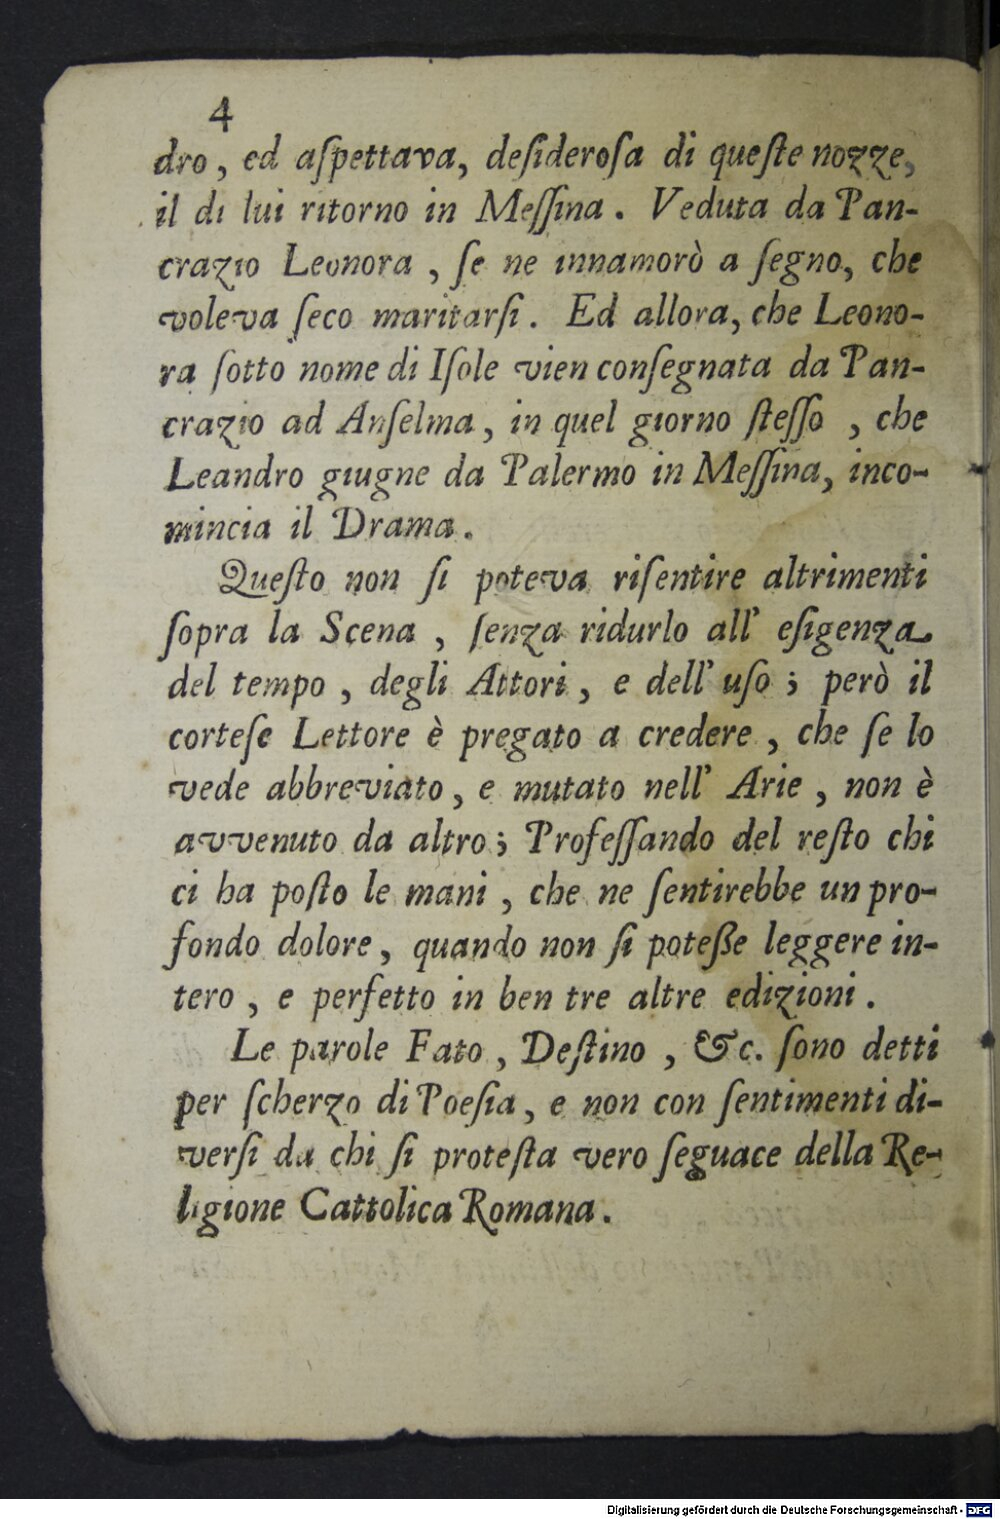 4
dro, ed aſpettava, deſideroſa di queſte nozze,
il di lui ritorno in Meſſina. Veduta da Pan-
crazio Leonora, ſe ne innamorò a ſegno, che
voleva ſeco maritarſi. Ed allora, che Leono-
ra ſotto nome di Iſole vien conſegnata da Pan-
crazio ad Anſelma, in quel giorno ſteſſo, che
Leandro giugne da Palermo in Meſſina, inco-
mincia il Drama.
Queſto non ſi poteva riſentire altrimenti
ſopra la Scena, ſenza ridurlo all' eſigenza
del tempo, degli Attori, e dell' uſo; però il
corteſe Lettore è pregato a credere, che ſe lo
vede abbreviato, e mutato nell' Arie, non è
avvenuto da altro; Profeſſando del reſto chi
ci ha poſto le mani, che ne ſentirebbe un pro-
fondo dolore, quando non ſi poteße leggere in-
tero, e perfetto in ben tre altre edizioni.
Le parole Fato, Deſtino, &c. ſono detti
per ſcherzo di Poeſia, e non con ſentimenti di-
verſi da chi ſi proteſta vero ſeguace della Re-
ligione Cattolica Romana.
Digitalisierung gefördert durch die Deutsche Forschungsgemeinschaft - DFG